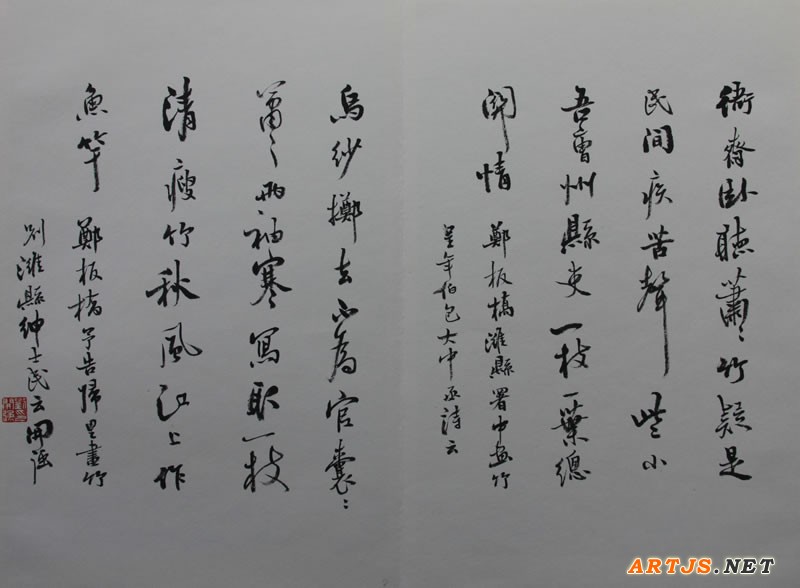 衙齋卧聽蕭〻竹疑是
民间疾苦聲 些小
吾曹州縣吏一枝一葉總
関情 鄭板橋濰縣署中画竹
呈年伯包大中丞诗云
烏纱擲去不為官囊〻
蕭〻兩袖寒寫取一枝
清瘦竹秋風江上作
魚竿 鄭板橋予告歸里畫竹
别濰縣紳士民云
ARTJS.NET